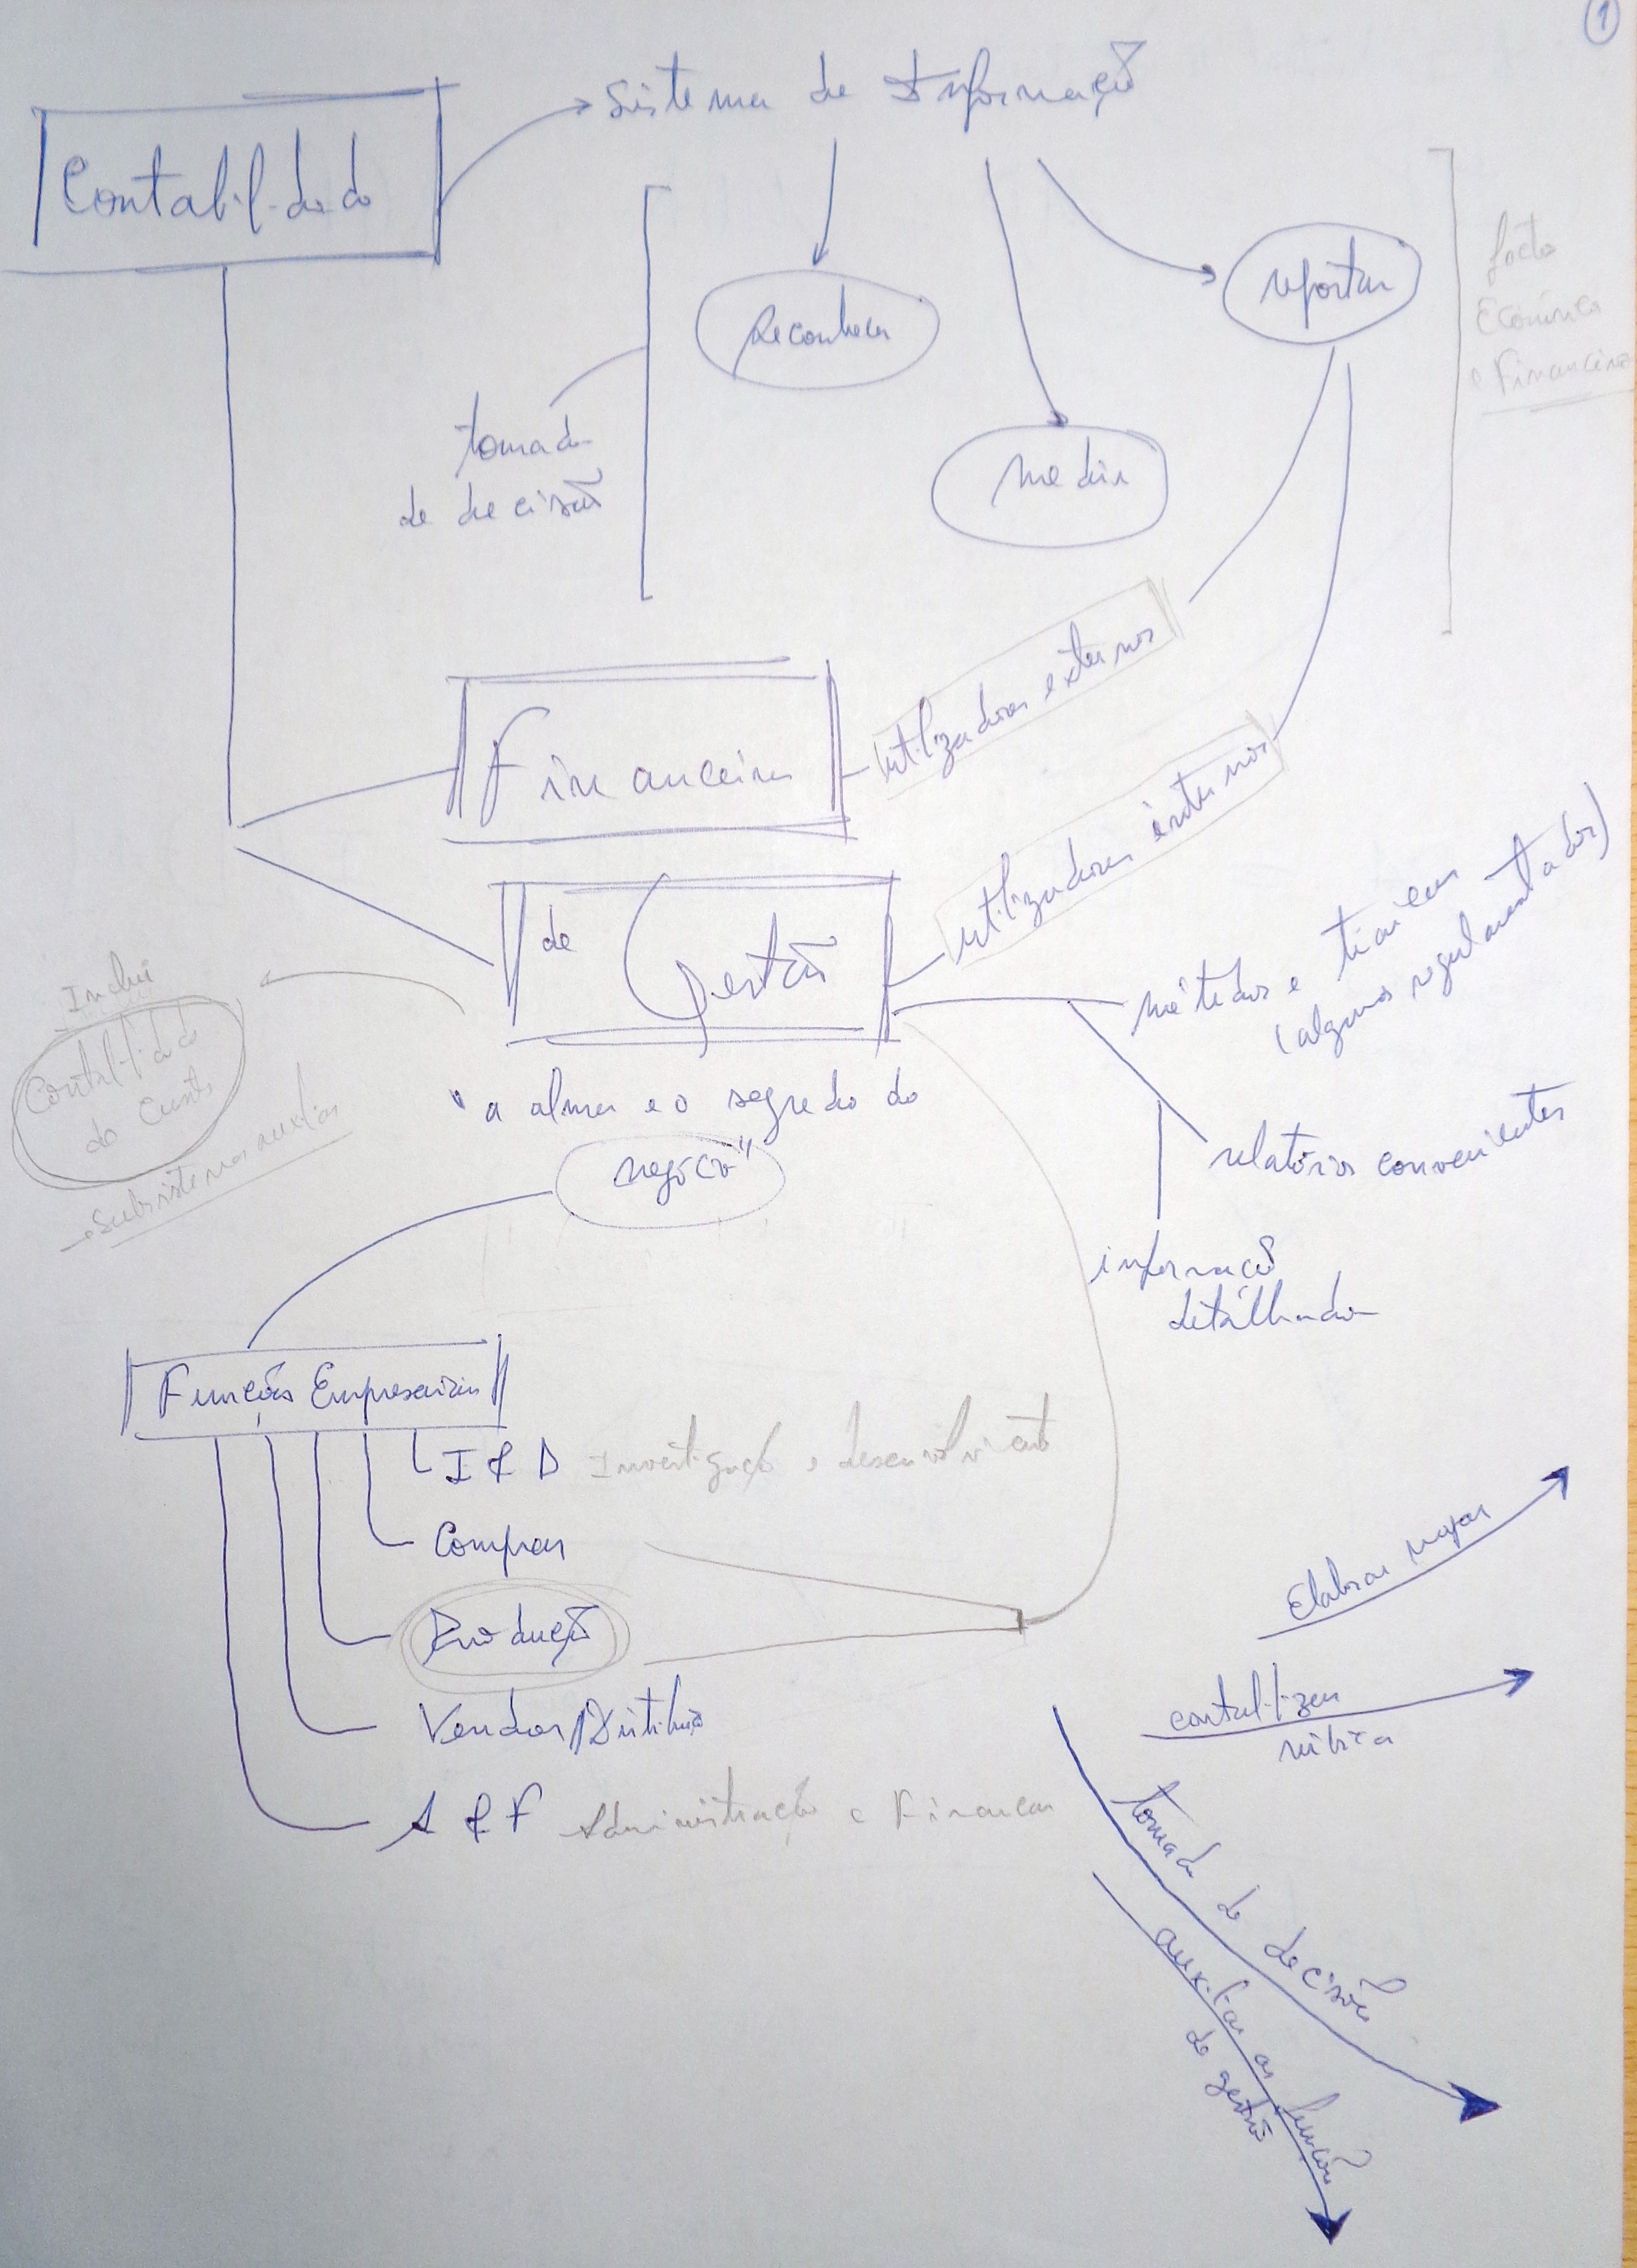 1
Sistema de Informação
Contabilidade
reportar
facto
Económico
e Financeiro
Reconhecer
tomada
de decisão
medir
utilizadores externos
Financeira
utilizadores internos
de Gestão
métodos e técnicas
(alguns regulamentados)
Inclui
Contabilidade
de Custos
→ Subsistemas auxiliar
"a alma e o segredo do
negócio"
relatórios convenientes
informação
detalhada
Funções Empresariais
I & D Investigação e desenvolvimento
Compras
Produção
Vendas/Distribuição
A & F Administração e Finanças
Elaborar mapas
contabilizar
rúbrica
tomada de decisão
auxiliar as funções
de gestão